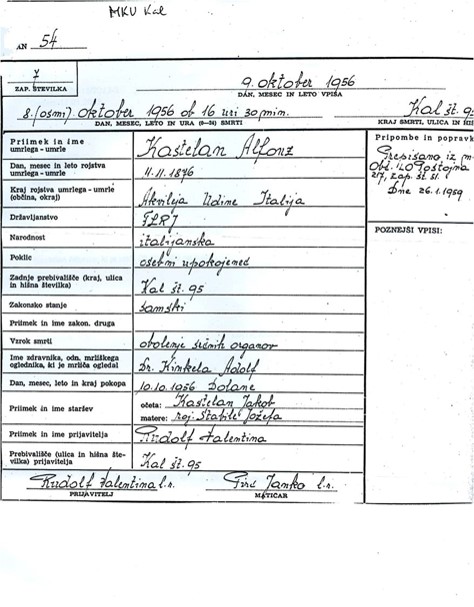 MKU Kal
AN 54
7
ZAP. ŠTEVILKA
9. oktober 1956
DAN, MESEC IN LETO VPISA
8. (osmi) oktober 1956 ob 16 uri 30 min.
DAN, MESEC, LETO IN URA (0—24) SMRTI
Kal št. 95
KRAJ SMRTI, ULICA IN HIŠ
Priimek in ime
umrlega - umrle
Kastelan Alfonz
Pripombe in popravk
Prepisano iz m
Obč. LO Postojna
217, zap. št. 51
Dne 26.1.1959
Dan, mesec in leto rojstva
umrlega - umrle
11.11.1876
Kraj rojstva umrlega - umrle
(občina, okraj)
Akvileja Udine Italija
Državljanstvo
FLRJ
POZNEJŠI VPISI:
Narodnost
italijanska
Poklic
osebni upokojenec
Zadnje prebivališče (kraj, ulica
in hišna številka)
Kal št. 95
Zakonsko stanje
samski
Priimek in ime zakon. druga
Vzrok smrti
obolenje sečnih organov
Ime zdravnika, odn. mrliškega
oglednika, ki je mrliča ogledal
Dr. Kinkela Adolf
Dan, mesec, leto in kraj pokopa
10.10.1956 Dolane
Priimek in ime staršev
očeta: Kastelan Jakob
matere: roj. Stabile Jožefa
Priimek in ime prijavitelja
Rudolf Valentina
Prebivališče (ulica in hišna šte-
vilka) prijavitelja
Kal št. 95
Rudolf Valentina l.r.
PRIJAVITELJ
Janko l.r.
MATIČAR